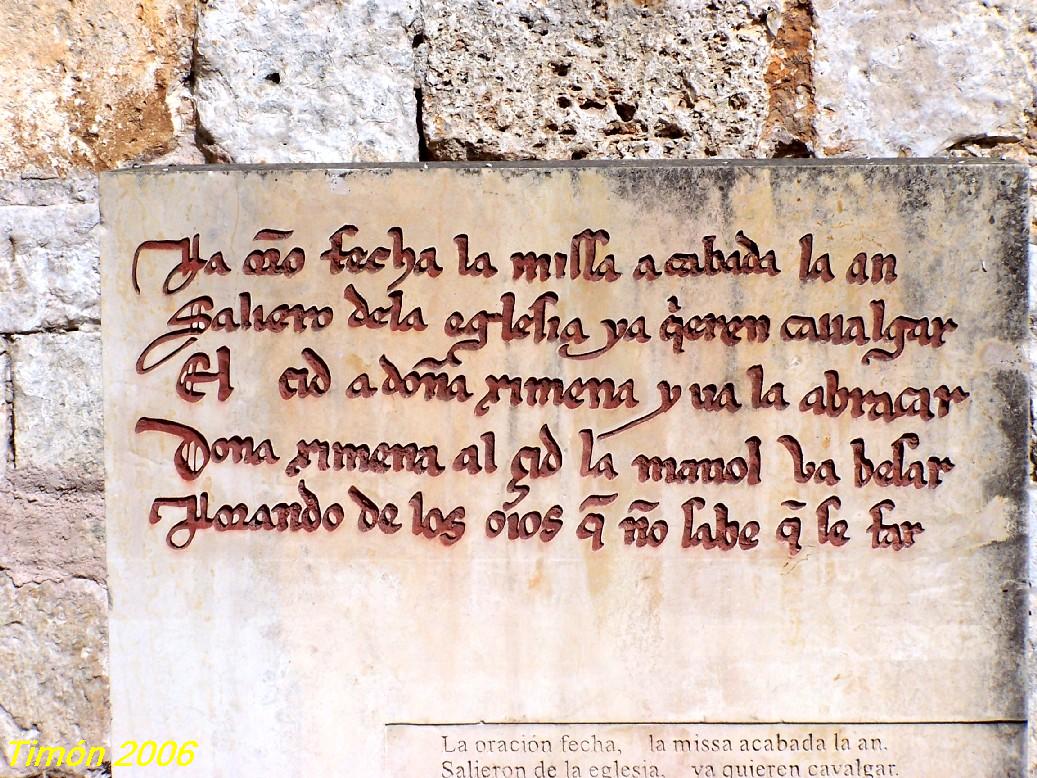 La orõ fecha la missa acabada la an
Saliero dela eglesia ya q̇eren caualgar
El cid a doña ximena yua la abraçar
Dona ximena al çid la manol va besar
Llorando de los oios q̃ ño sabe q̃ se far
La oración fecha, la missa acabada la an.
Salieron de la eglesia, ya quieren cavalgar.
Timón 2006